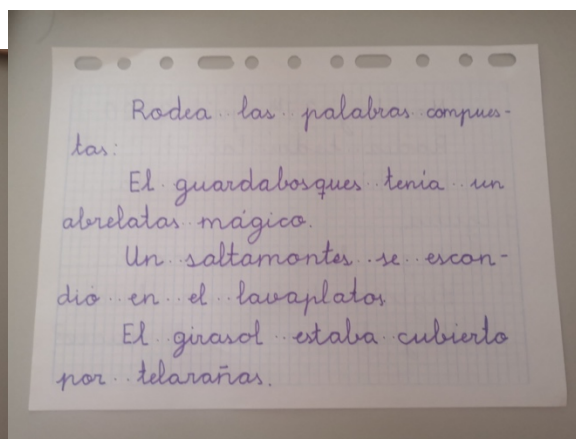 Rodea las palabras compues-
tas:
El guardabosques tenía un
abrelatas mágico.
Un saltamontes se escon-
dió en el lavaplatos.
El girasol estaba cubierto
por telarañas.